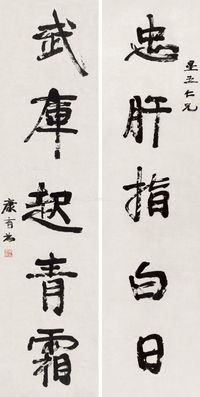 星五仁兄
忠肝指白日
武庫起青霜
康有為